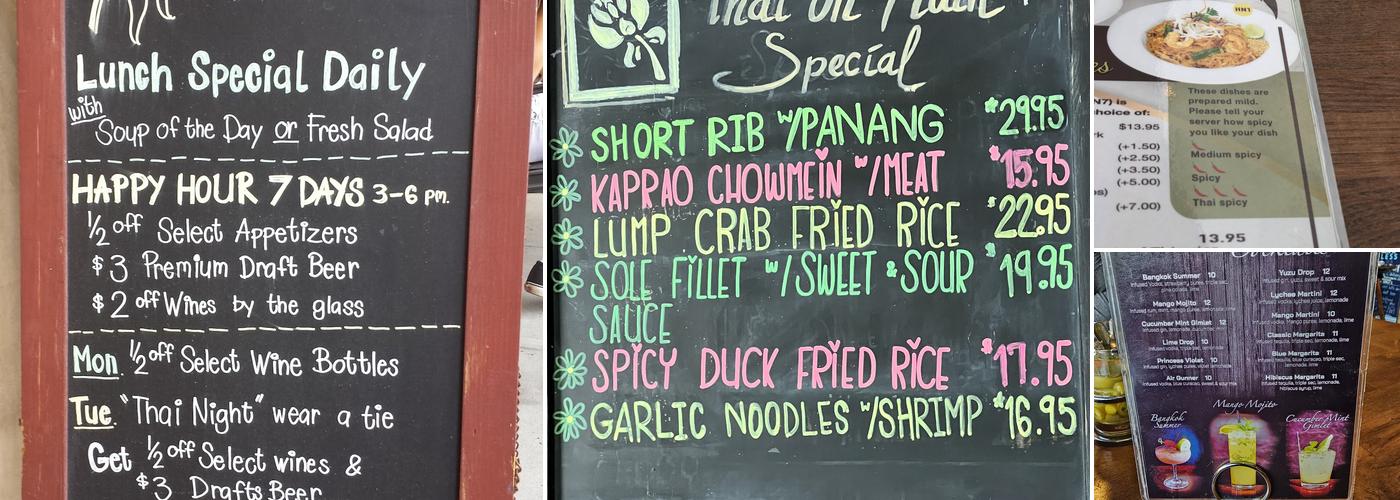 Lunch Special Daily
with
Soup of the Day or Fresh Salad
HAPPY HOUR 7 DAYS 3-6 pm.
1/2 off Select Appetizers
$3 Premium Draft Beer
$2 off Wines by the glass
Mon. 1/2 off Select Wine Bottles
Tue. "Thai Night" wear a tie
Get 1/2 off Select wines &
$3 Drafts Beer
Thai on Main
Special
SHORT RIB W/PANANG $29.95
KAPRAO CHOWMEIN W/MEAT $15.95
LUMP CRAB FRIED RICE $22.95
SOLE FILLET W/SWEET & SOUR $19.95
SAUCE
SPICY DUCK FRIED RICE $17.95
GARLIC NOODLES W/SHRIMP $16.95
HN1
es
N7) is
hoice of:
rk $13.95
(+1.50)
(+2.50)
(+3.50)
(+5.00)
(+7.00)
These dishes are
prepared mild.
Please tell your
server how spicy
you like your dish
Medium spicy
Spicy
Thai spicy
13.95
Bangkok Summer 10
Mango Mojito 12
Cucumber Mint Gimlet 12
Lime Drop 10
Princess Violet 10
Air Gunner 10
Yuzu Drop 12
Lychee Martini 12
Mango Martini 10
Classic Margarita 11
Blue Margarita 11
Hibiscus Margarita 11
Bangkok
Summer
Mango Mojito
Cucumber Mint
Gimlet